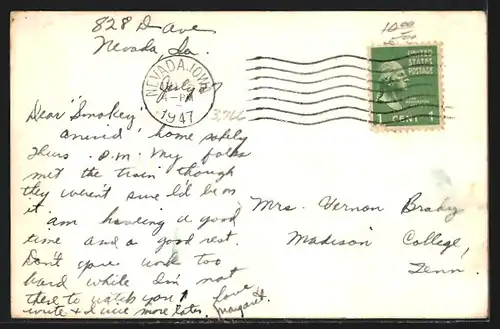 828 D Ave
Nevada, Ia.
July 27
Dear "Smokey",
arrived home safely
Thurs. P.M. My folks
met the train though
they weren't sure I'd be on
it. am having a good
time and a good rest.
Don't you work too
hard while I'm not
there to watch you!
write & I will more later.
Love,
Margaret.
NEVADA, IOWA
PM
1947
3766
10.00
UNITED
STATES
POSTAGE
WASHINGTON
1 CENT 1
Mrs. Vernon Brady
Madison College,
Tenn.